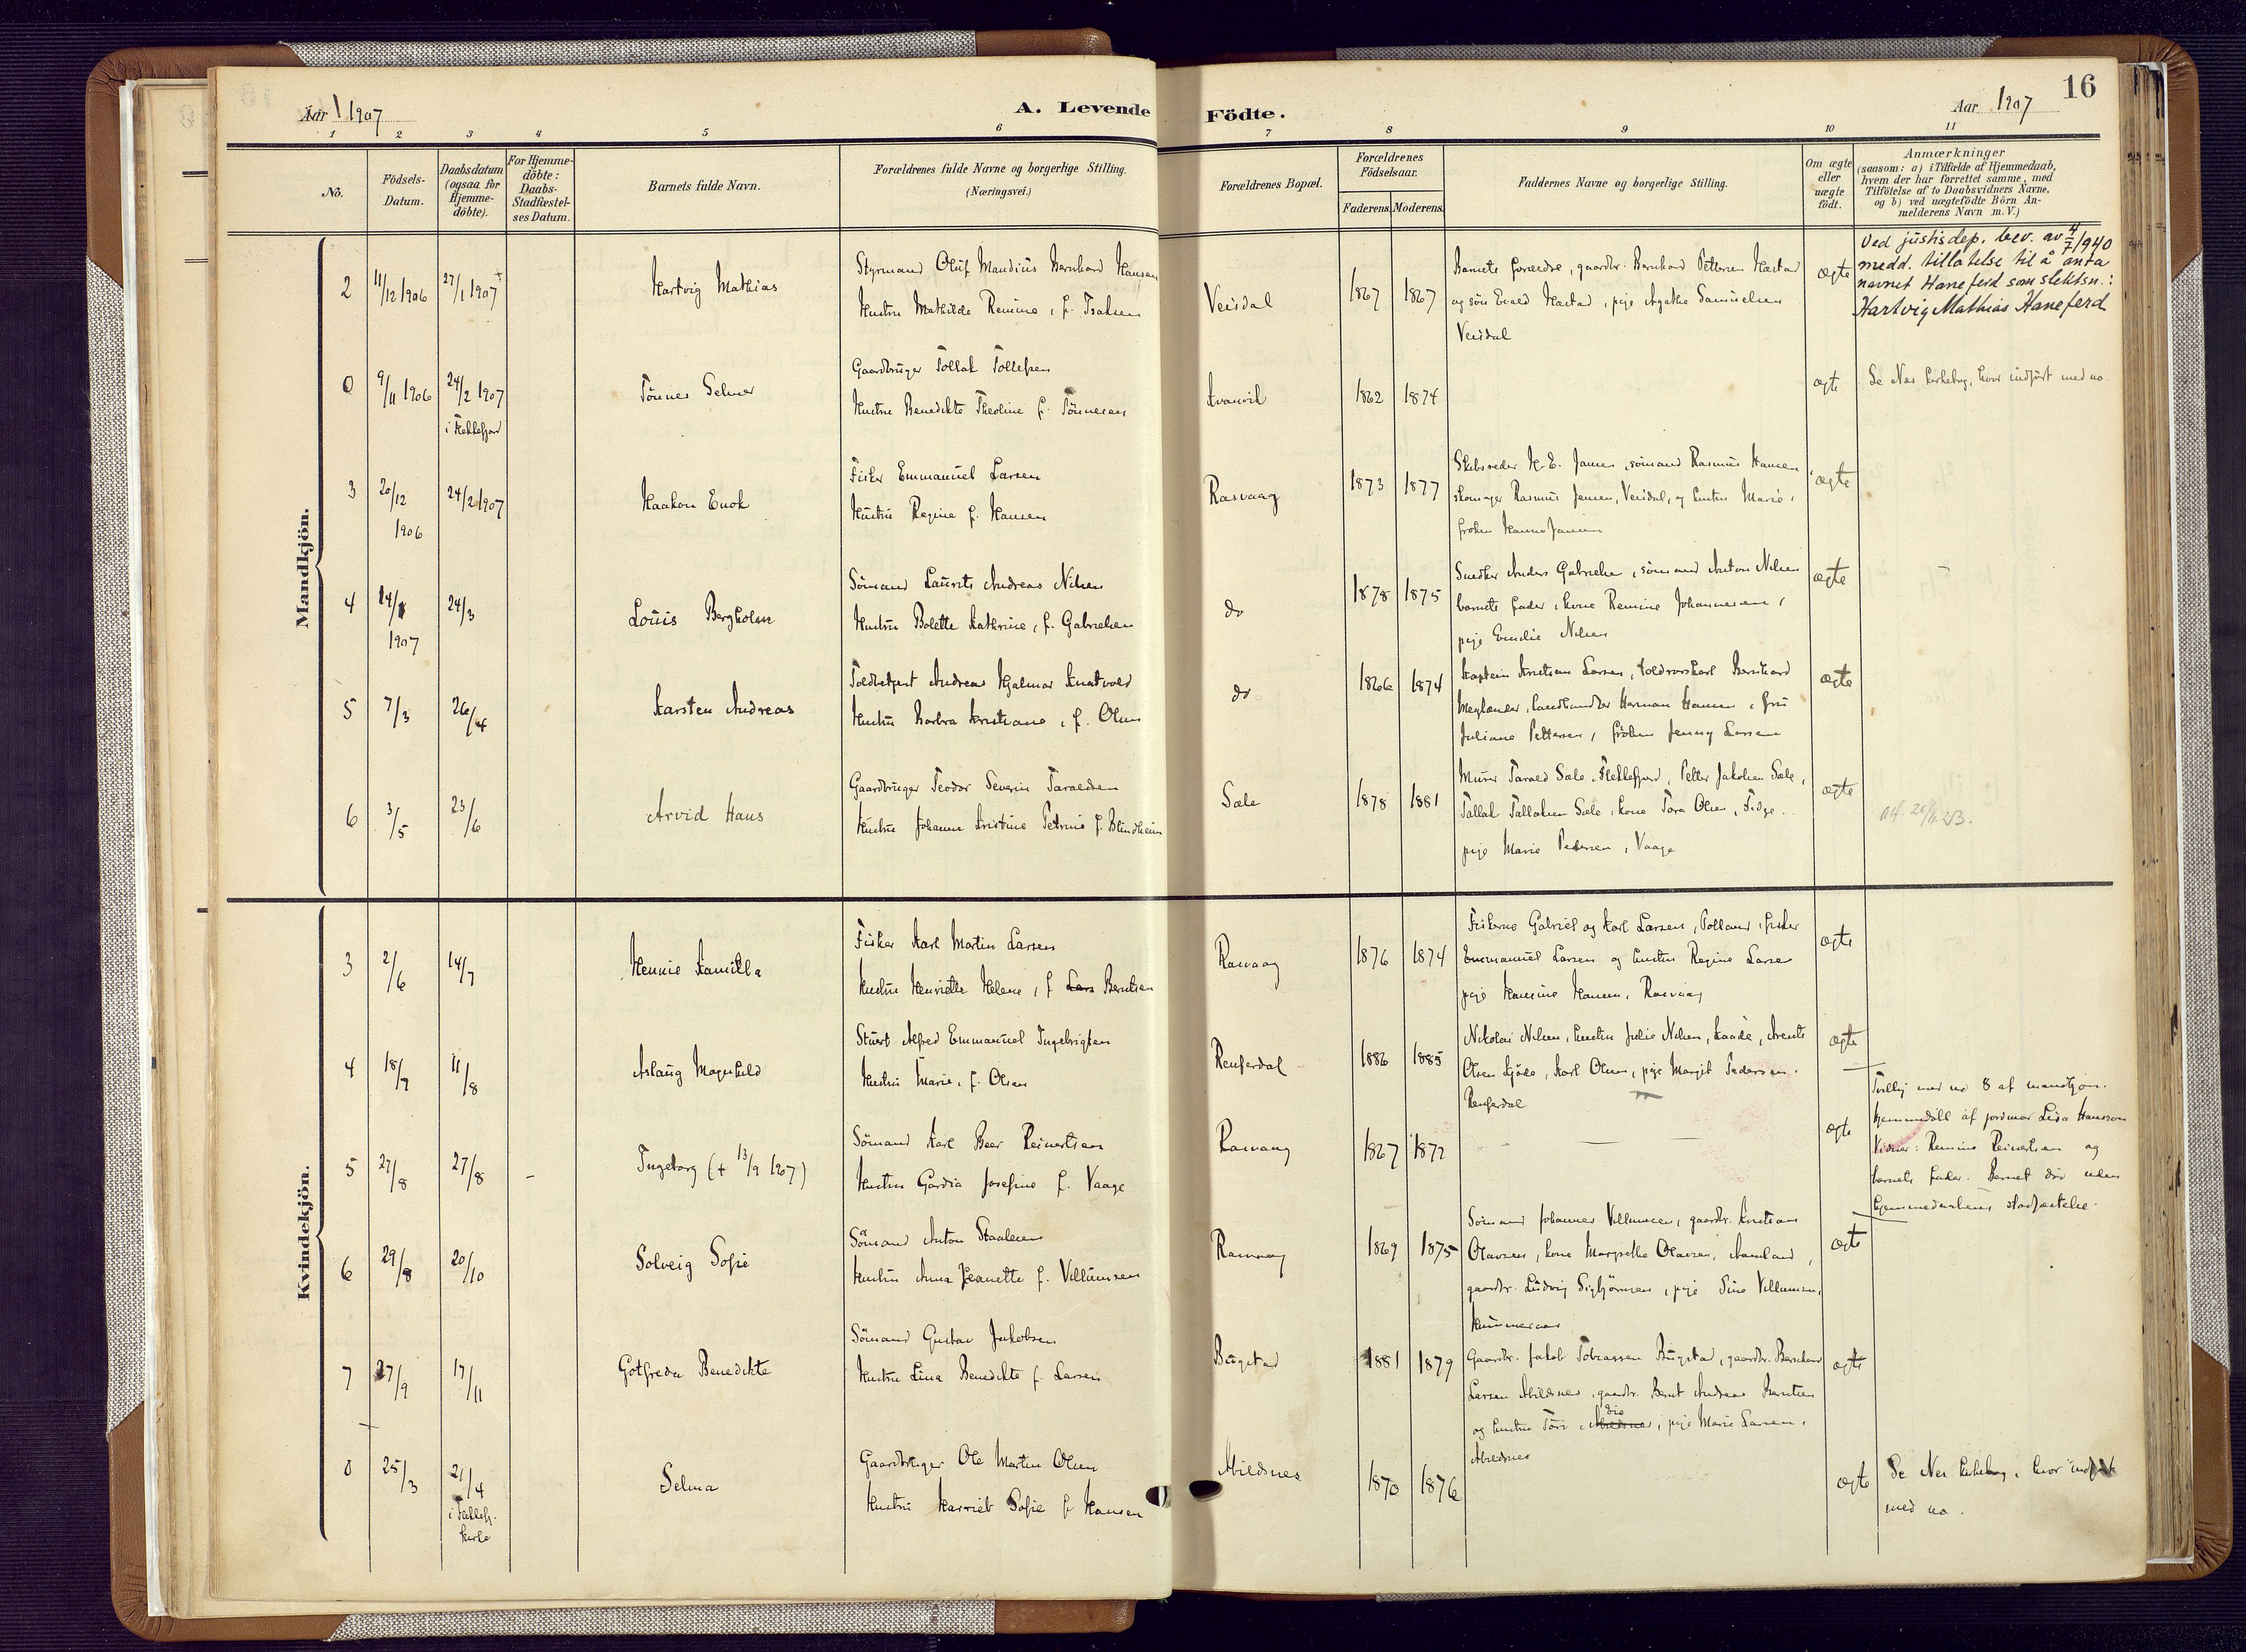 Aar 1907
A. Levende Födte.
Aar 1907
16
1 2 3 4 5 6 7 8 9 10 11
No.
Födsels-Datum.
Daabsdatum (ogsaa for Hjemme-döbte).
For Hjemme-döbte: Daabs-Stadfæstel-ses Datum.
Barnets fulde Navn.
Forældrenes fulde Navne og borgerlige Stilling.
(Næringsvei.)
Forældrenes Bopæl.
Forældrenes Födselsaar.
Faderens. Moderens.
Faddernes Navne og borgerlige Stilling.
Om ægte eller uægte födt.
Anmærkninger
(saasom: a) i Tilfælde af Hjemmedaab,
hvem der har forrettet samme, med
Tilföielse af to Daabsvidners Navne,
og b) ved uægtefödte Börn An-
melderens Navn m. V.)
Mandkjön.
2 11/12 1906 27/1 1907 Hartvig Mathias
Styrmand Oluf Maudius Bernhard Hansen
Hustru Mathilde Remine, f. Isaksen
Veisdal 1867 1867
Barnets forældre, gaardbr. Bernhard Pettersen Hastad
og søn Evald Hastad, pige Agathe Samuelsen
Veisdal
ægte
Ved justisdep. bev. av 4/7 1940
medd. tillatelse til å anta
navnet Haneferd som slektsn.:
Hartvig Mathias Haneferd
0 9/11 1906 24/2 1907
i Flekkefjord
Tönnes Selmer
Gaardbruger Tollak Tollefsen
Hustru Benedikte Theoline f. Tönnesen
Kvanvik 1862 1874
ægte
Se Nes kirkebog, hvor indført med no.
3 20/12 1906 24/2 1907 Haakon Enok
Fisker Emmanuel Larsen
Hustru Regine f. Hansen
Rasvaag 1873 1877
Skibsreder H. E. Jansen, sömand Rasmus Hansen
skomager Rasmus Jensen, Veisdal, og hustru Marie,
frøken Hanna Jansen
ægte
4 24/1 1907 24/3 Louis Bergholm
Sömand Laurits Andreas Nilsen
Hustru Bolette Kathrine, f. Gabrielsen
do 1878 1875
Snedker Anders Gabrielsen, sömand Anton Nilsen
barnets fader, kone Remine Johannesen,
pige Emilie Nilsen
ægte
5 7/3 26/4 Karsten Andreas
Toldbetjent Andreas Hjalmar Knatvold
Hustru Barbra Kristiane, f. Olsen
do 1866 1874
Kaptein Kristian Larsen, toldrorskarl Bernhard
Meglænder, landhandler Herman Hansen, fru
Juliane Pettersen, frøken Jenny Larsen
ægte
6 3/5 23/6 Arvid Hans
Gaardbruger Teodor Severin Taraldsen
Hustru Johanne Kristine Petrine f. Blindheim
Sæle 1878 1881
Murer Tarald Sæle, Flekkefjord, Petter Jakobsen Sæle,
Tallak Tallaksen Sæle, kone Tora Olsen, Fidge..
pige Marie Pedersen, Vaage
ægte
Kvindekjön.
3 2/6 14/7 Hennie Kamilla
Fisker Karl Martin Larsen
Hustru Henriette Helene, f Lars Berntsen
Rasvaag 1876 1874
Fiskerne Gabriel og Karl Larsen, Polland, fisker
Emmanuel Larsen og hustru Regine Larsen
pige Hansine Hansen, Rasvaag
ægte
4 18/7 11/8 Aslaug Magnhild
Stuert Alfred Emmanuel Ingebrigtsen
Hustru Marie, f. Olsen
Renferdal 1886 1885
Nikolai Nilsen, hustru Julie Nilsen, Kaade, Arents
Olsen Kjöde, Karl Olsen, pige Margit Pedersen.
Renferdal
ægte
5 27/8 27/8 - Ingeborg (+ 13/9 1907)
Sömand Karl Beer Reinertsen
Hustru Gardia Josefine f. Vaage
Rasvaag 1867 1872
ægte
Tvilling med no 8 af mandkjön.
Hjemmedöbt af jordmor Lisa Hansson
Vidner: Remine Reinertsen og
barnets fader. Barnet döde uden
hjemmedaabens stadfæstelse.
6 29/8 20/10 Solveig Sofie
Sömand Anton Staalesen
Hustru Anna Jeanette f. Villumsen
Rasvaag 1869 1875
Sömand Johannes Villumsen, gaardbr. Kristian
Olavsen, kone Margrethe Olavsen, Aamland,
gaardbr. Ludvig Sigbjörnsen, pige Sine Villumsen,
Hummeraas
ægte
7 27/9 17/11 Gotfreda Benedikte
Sömand Gustav Jakobsen
Hustru Lina Benedikte f. Larsen
Bugstad 1881 1879
Gaardbr. Jakob Tobiassen Bugstad, gaardbr. Bernhard
Larsen Abildsnes, gaardbr. Bernt Andreas Berntsen
og hustru Tora Abildsnes, pige Marie Larsen,
Abildsnes
ægte
0 25/3 21/4
i Flekkefj. kirke
Selma
Gaardbruger Ole Martin Olsen
Hustru Harriet Sofie f. Hansen
Abildsnes 1870 1876
ægte
Se Nes kirkebog, hvor indfört
med no.